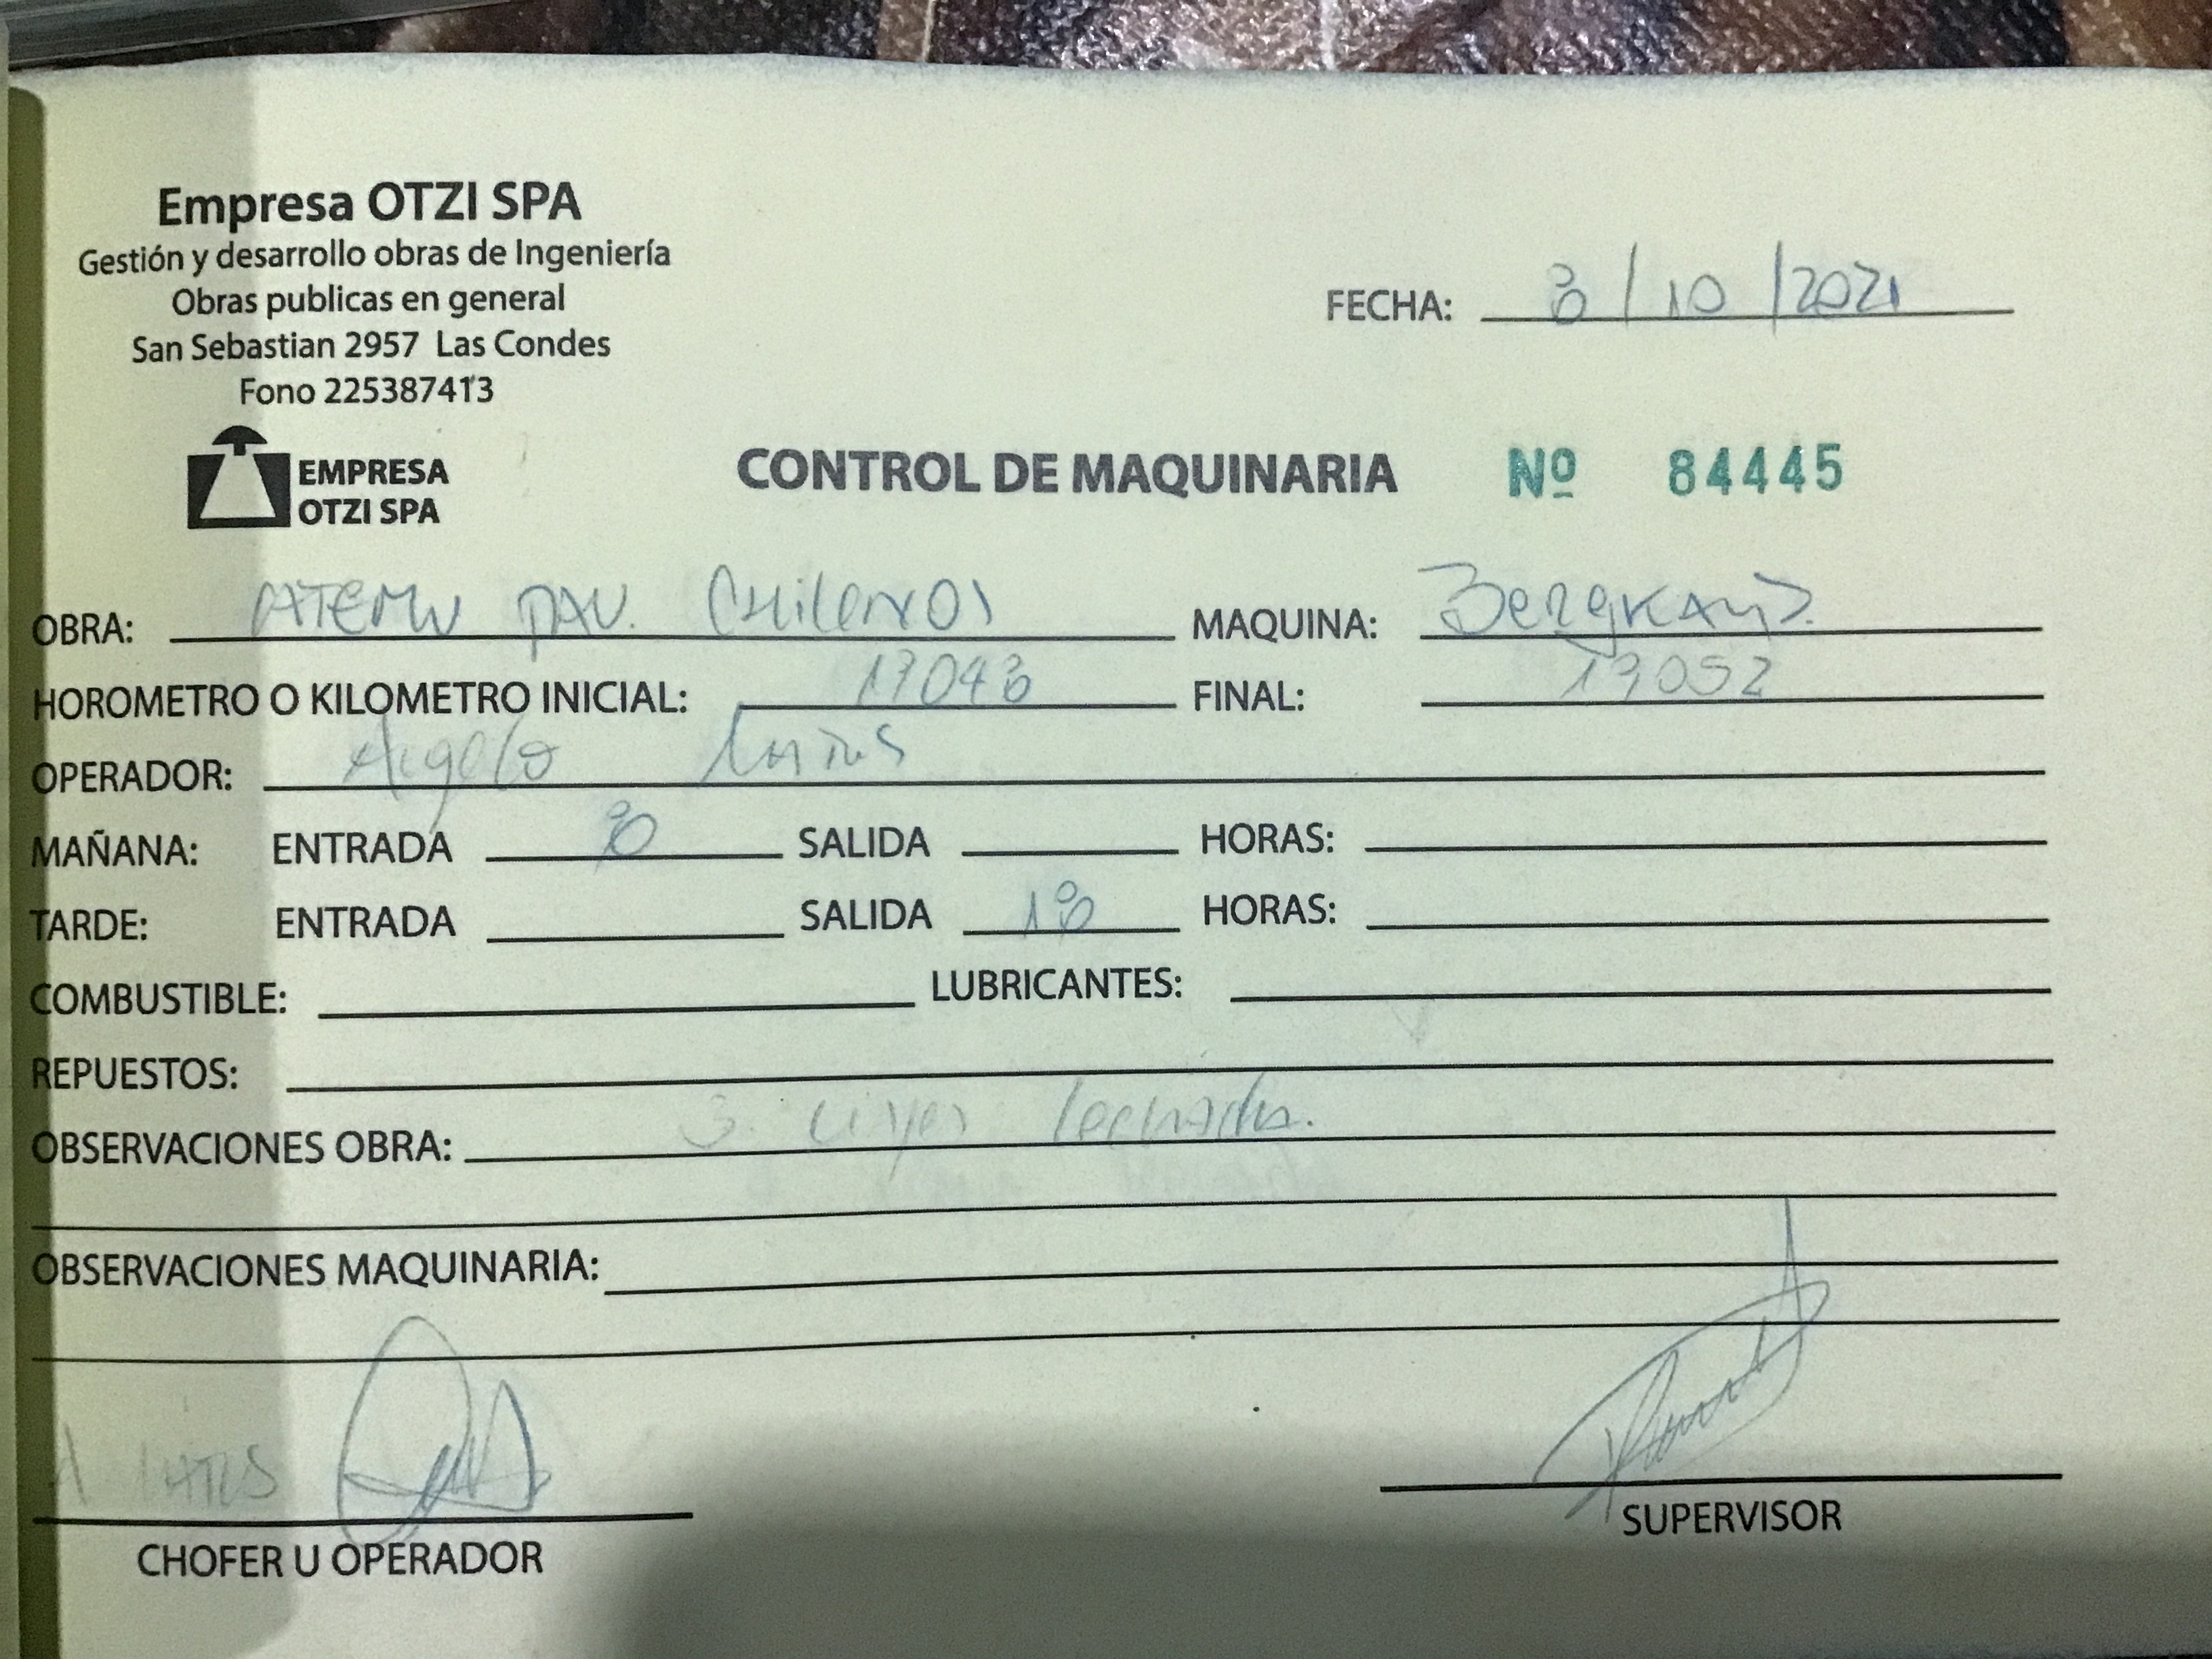 Empresa OTZI SPA
Gestión y desarrollo obras de Ingeniería
Obras publicas en general
San Sebastian 2957 Las Condes
Fono 225387413
FECHA: 8/10/2021
EMPRESA
OTZI SPA
CONTROL DE MAQUINARIA Nº 84445
OBRA: CATEMU PAV. CHILENOS MAQUINA:
HOROMETRO O KILOMETRO INICIAL: FINAL:
OPERADOR: Angelo
MAÑANA: ENTRADA 8 SALIDA HORAS:
TARDE: ENTRADA SALIDA 18 HORAS:
COMBUSTIBLE: LUBRICANTES:
REPUESTOS:
OBSERVACIONES OBRA: 3
OBSERVACIONES MAQUINARIA:
CHOFER U OPERADOR
SUPERVISOR